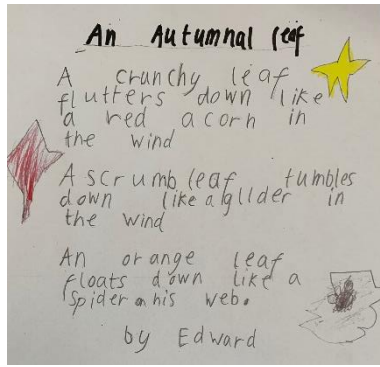 An Autumnal leaf
A crunchy leaf
flutters down like
a red acorn in
the wind
A scrumb leaf tumbles
down like a glider in
the wind
An orange leaf
floats down like a
spider on his web.
by Edward